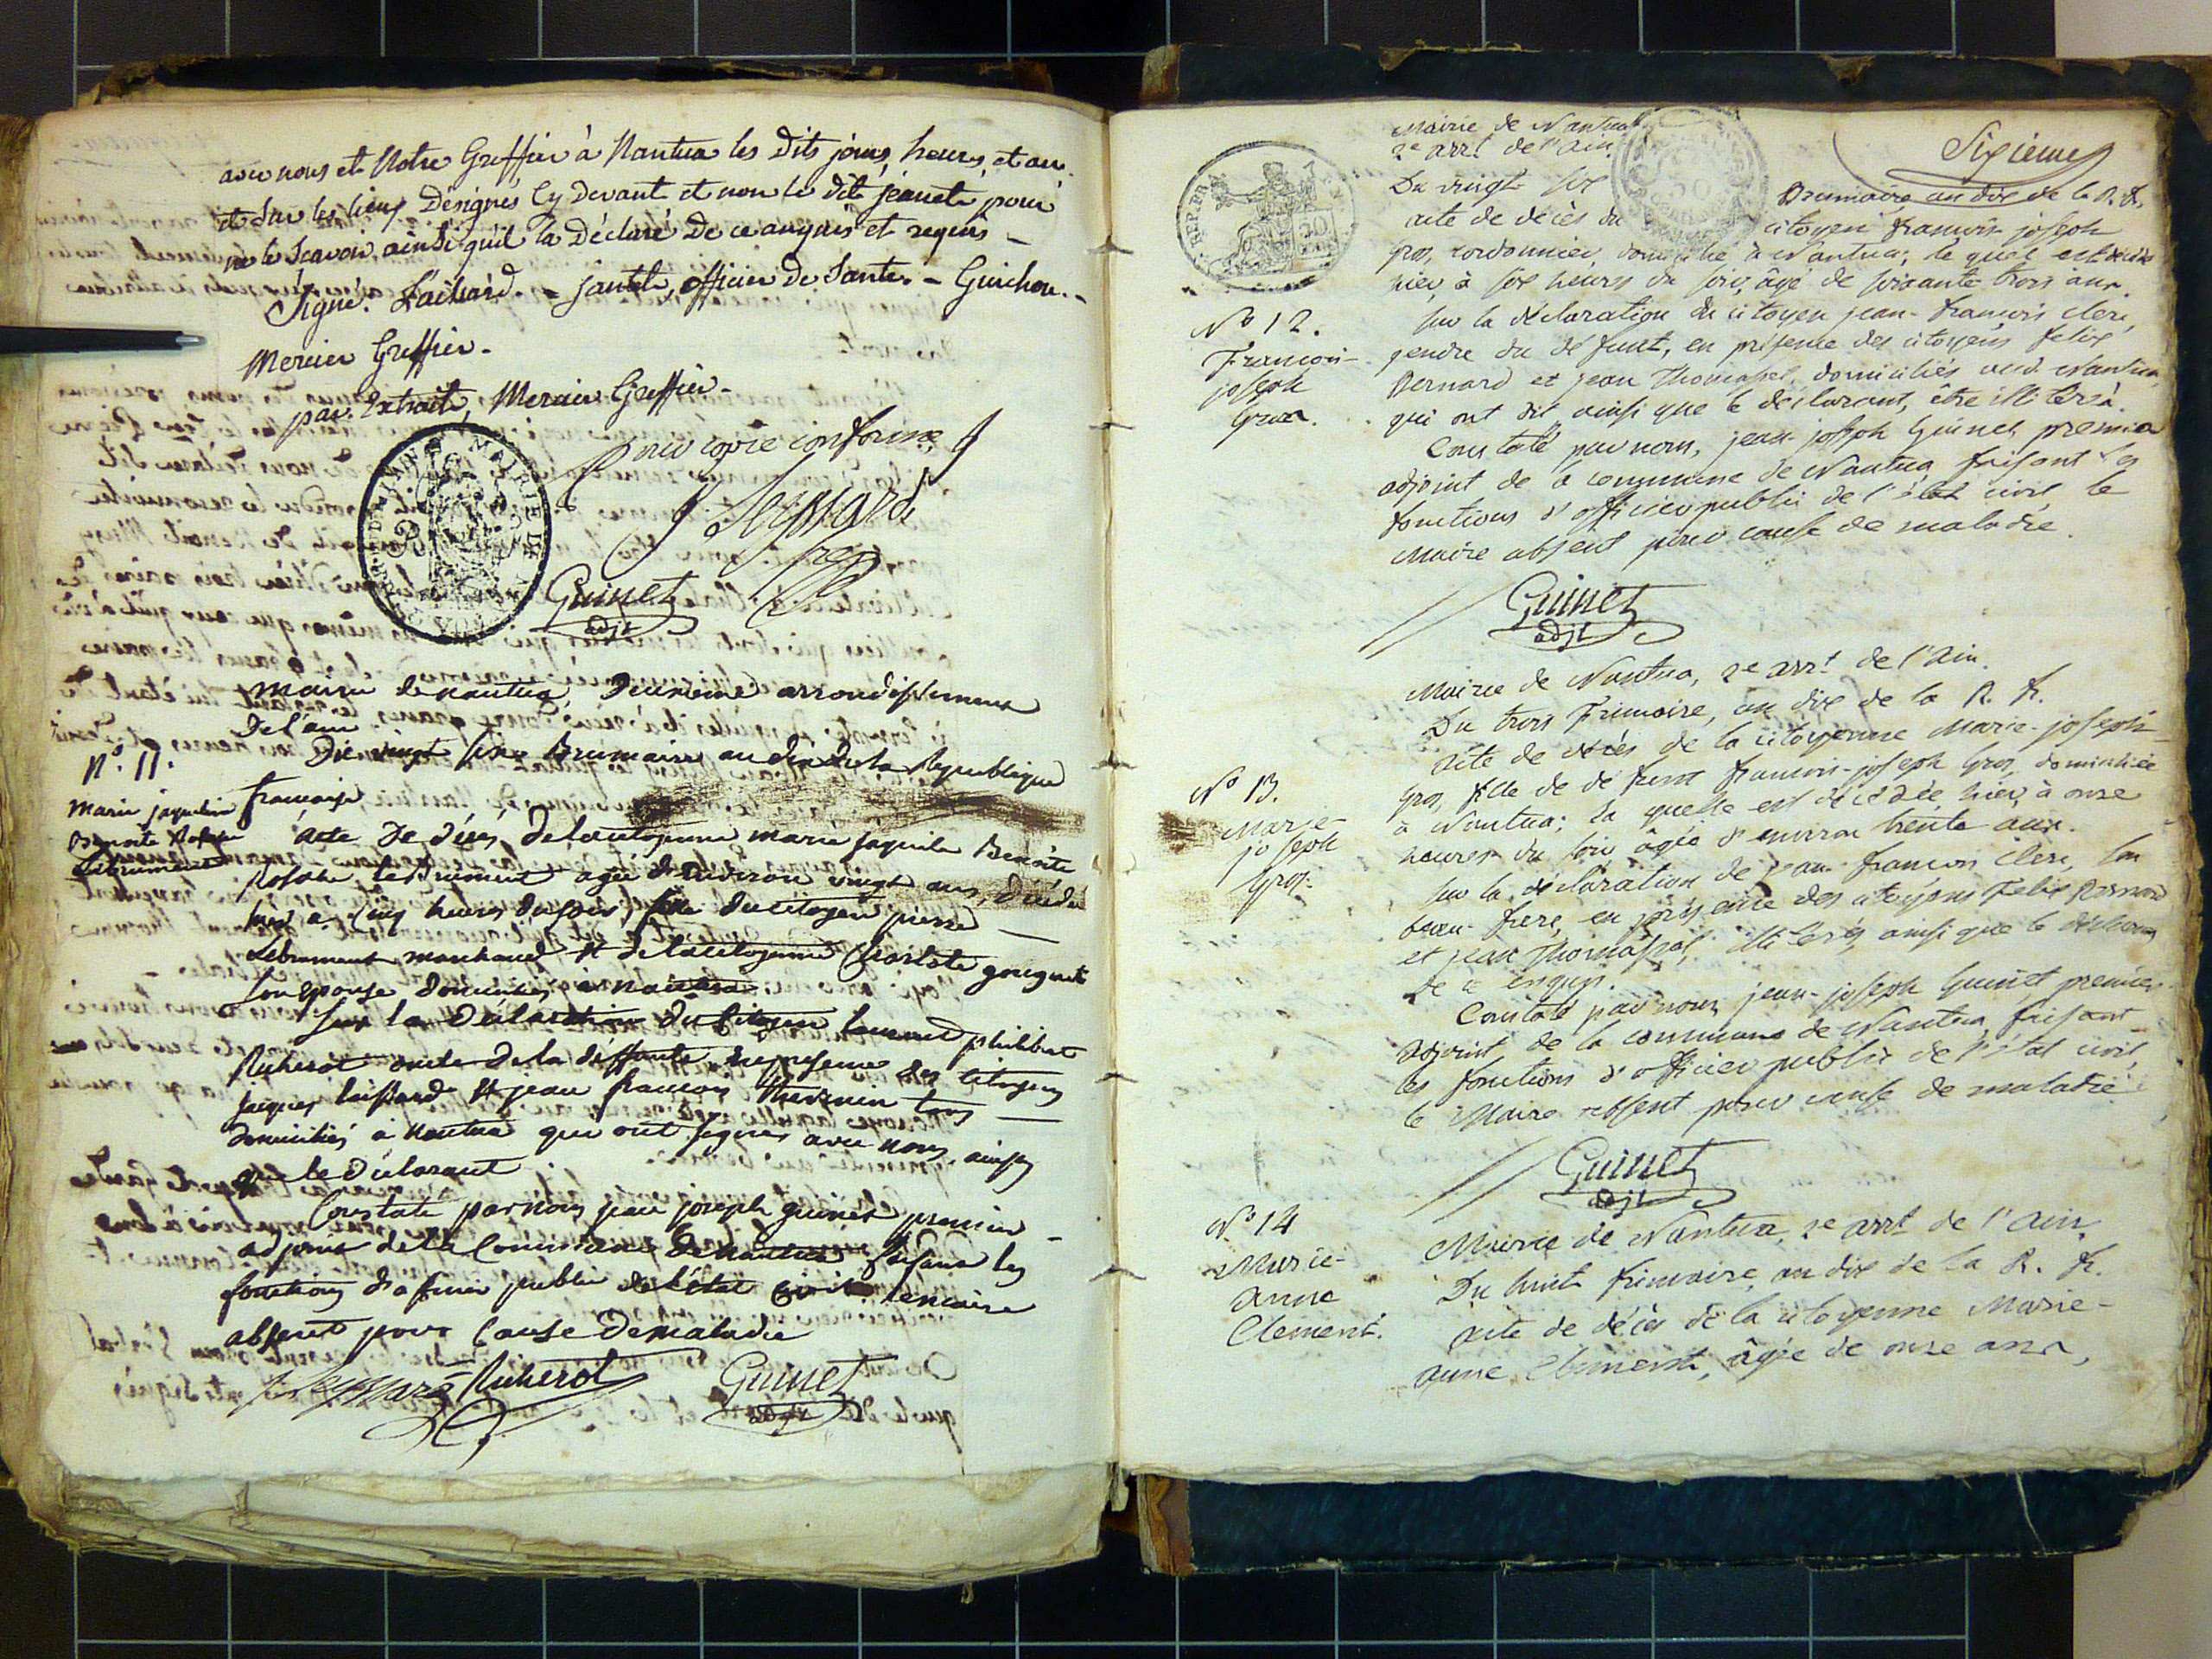 avec nous et Notre Greffier à Nantua les Dits jours, heures, et an
et Sur les lieux Désignés Cy Devant et non le dit jeanet pour
ne le Scavoir, ainsi qu'il l'a Déclaré De ce enquis et requis _
Signé. - jantet, officier De Santé. - Guichon. -
Mercier Greffier -
par Extrait, Mercier Greffier -
pour copie conforme
Guinet
adjt
mairie de nantua, Deuxieme arrondissement
De l'ain
N°. 11.
Du vingt Six Brumaire an dix de la Republique
francaise
Marie jaqueline
Benoite Rosalie
acte De décès de la citoyenne marie jaqueline Benoite
Rosalie agée d'environ vingt ans, décédée
hier a Cinq heures du soir, fille du citoyen pierre _
marchand et de la citoyenne Charlote
Son epouse domiciliés à nantua
Sur la Déclaration du Citoyen philibert
Richerot oncle de la déffunte en presence des citoyens
jacques et jean francois tous _
domiciliés a nantua qui ont signés avec nous, ainsy
que le déclarant
Constaté par nous jean joseph guinet premier
adjoint de la Commune de nantua faisant les
fonctions d'officier public de l'état civil le maire
absent pour Cause De maladie
Richerot
Guinet
adjt
Sixieme
Mairie de Nantua
2e arrt de l'ain
Du vingt six Brumaire an dix de la R. fr.
acte de décès du citoyen francois joseph
gros, cordonnier, domicilié à Nantua; le quel est décédé
hier, à six heures du soir, âgé de soixante trois ans.
N° 12.
François-
joseph
Gros.
sur la déclaration du citoyen jean-francois clerc,
gendre du défunt, en présence des citoyens felix
Bernard et jean Thomasset, domiciliés au dit Nantua
qui ont dit, ainsi que le déclarant, être illitérés.
Constaté par nous, jean-joseph Guinet, premier
adjoint de la commune de Nantua, faisant les
fonctions d'officier public de l'état civil, le
Maire absent pour cause de maladie.
Guinet
adjt
Mairie de Nantua, 2e arrt de l'ain.
Du trois Frimaire, an dix de la R. fr.
N° 13.
Marie-
joseph
Gros.
acte de décès de la citoyenne Marie-joseph
gros, fille de défunt francois-joseph Gros, domiciliée
à Nantua; la quelle est décédée, hier, à onze
heures du soir âgée d'environ trente ans.
sur la déclaration de jean-francois clerc, son
beau-frere, en présence des citoyens Felix Bernard
et jean Thomasset, illitérés, ainsi que le déclarant
de ce enquis.
Constaté par nous jean-joseph Guinet, premier
adjoint de la commune de Nantua, faisant
les fonctions d'officier public de l'état civil,
le Maire absent pour cause de maladie.
Guinet
adjt
N° 14
Marie-
anne
Clement.
Mairie de Nantua, 2e arrt de l'ain,
Du huit frimaire, an dix de la R. fr.
acte de décès de la citoyenne Marie-
anne Clement, âgée de onze ans,